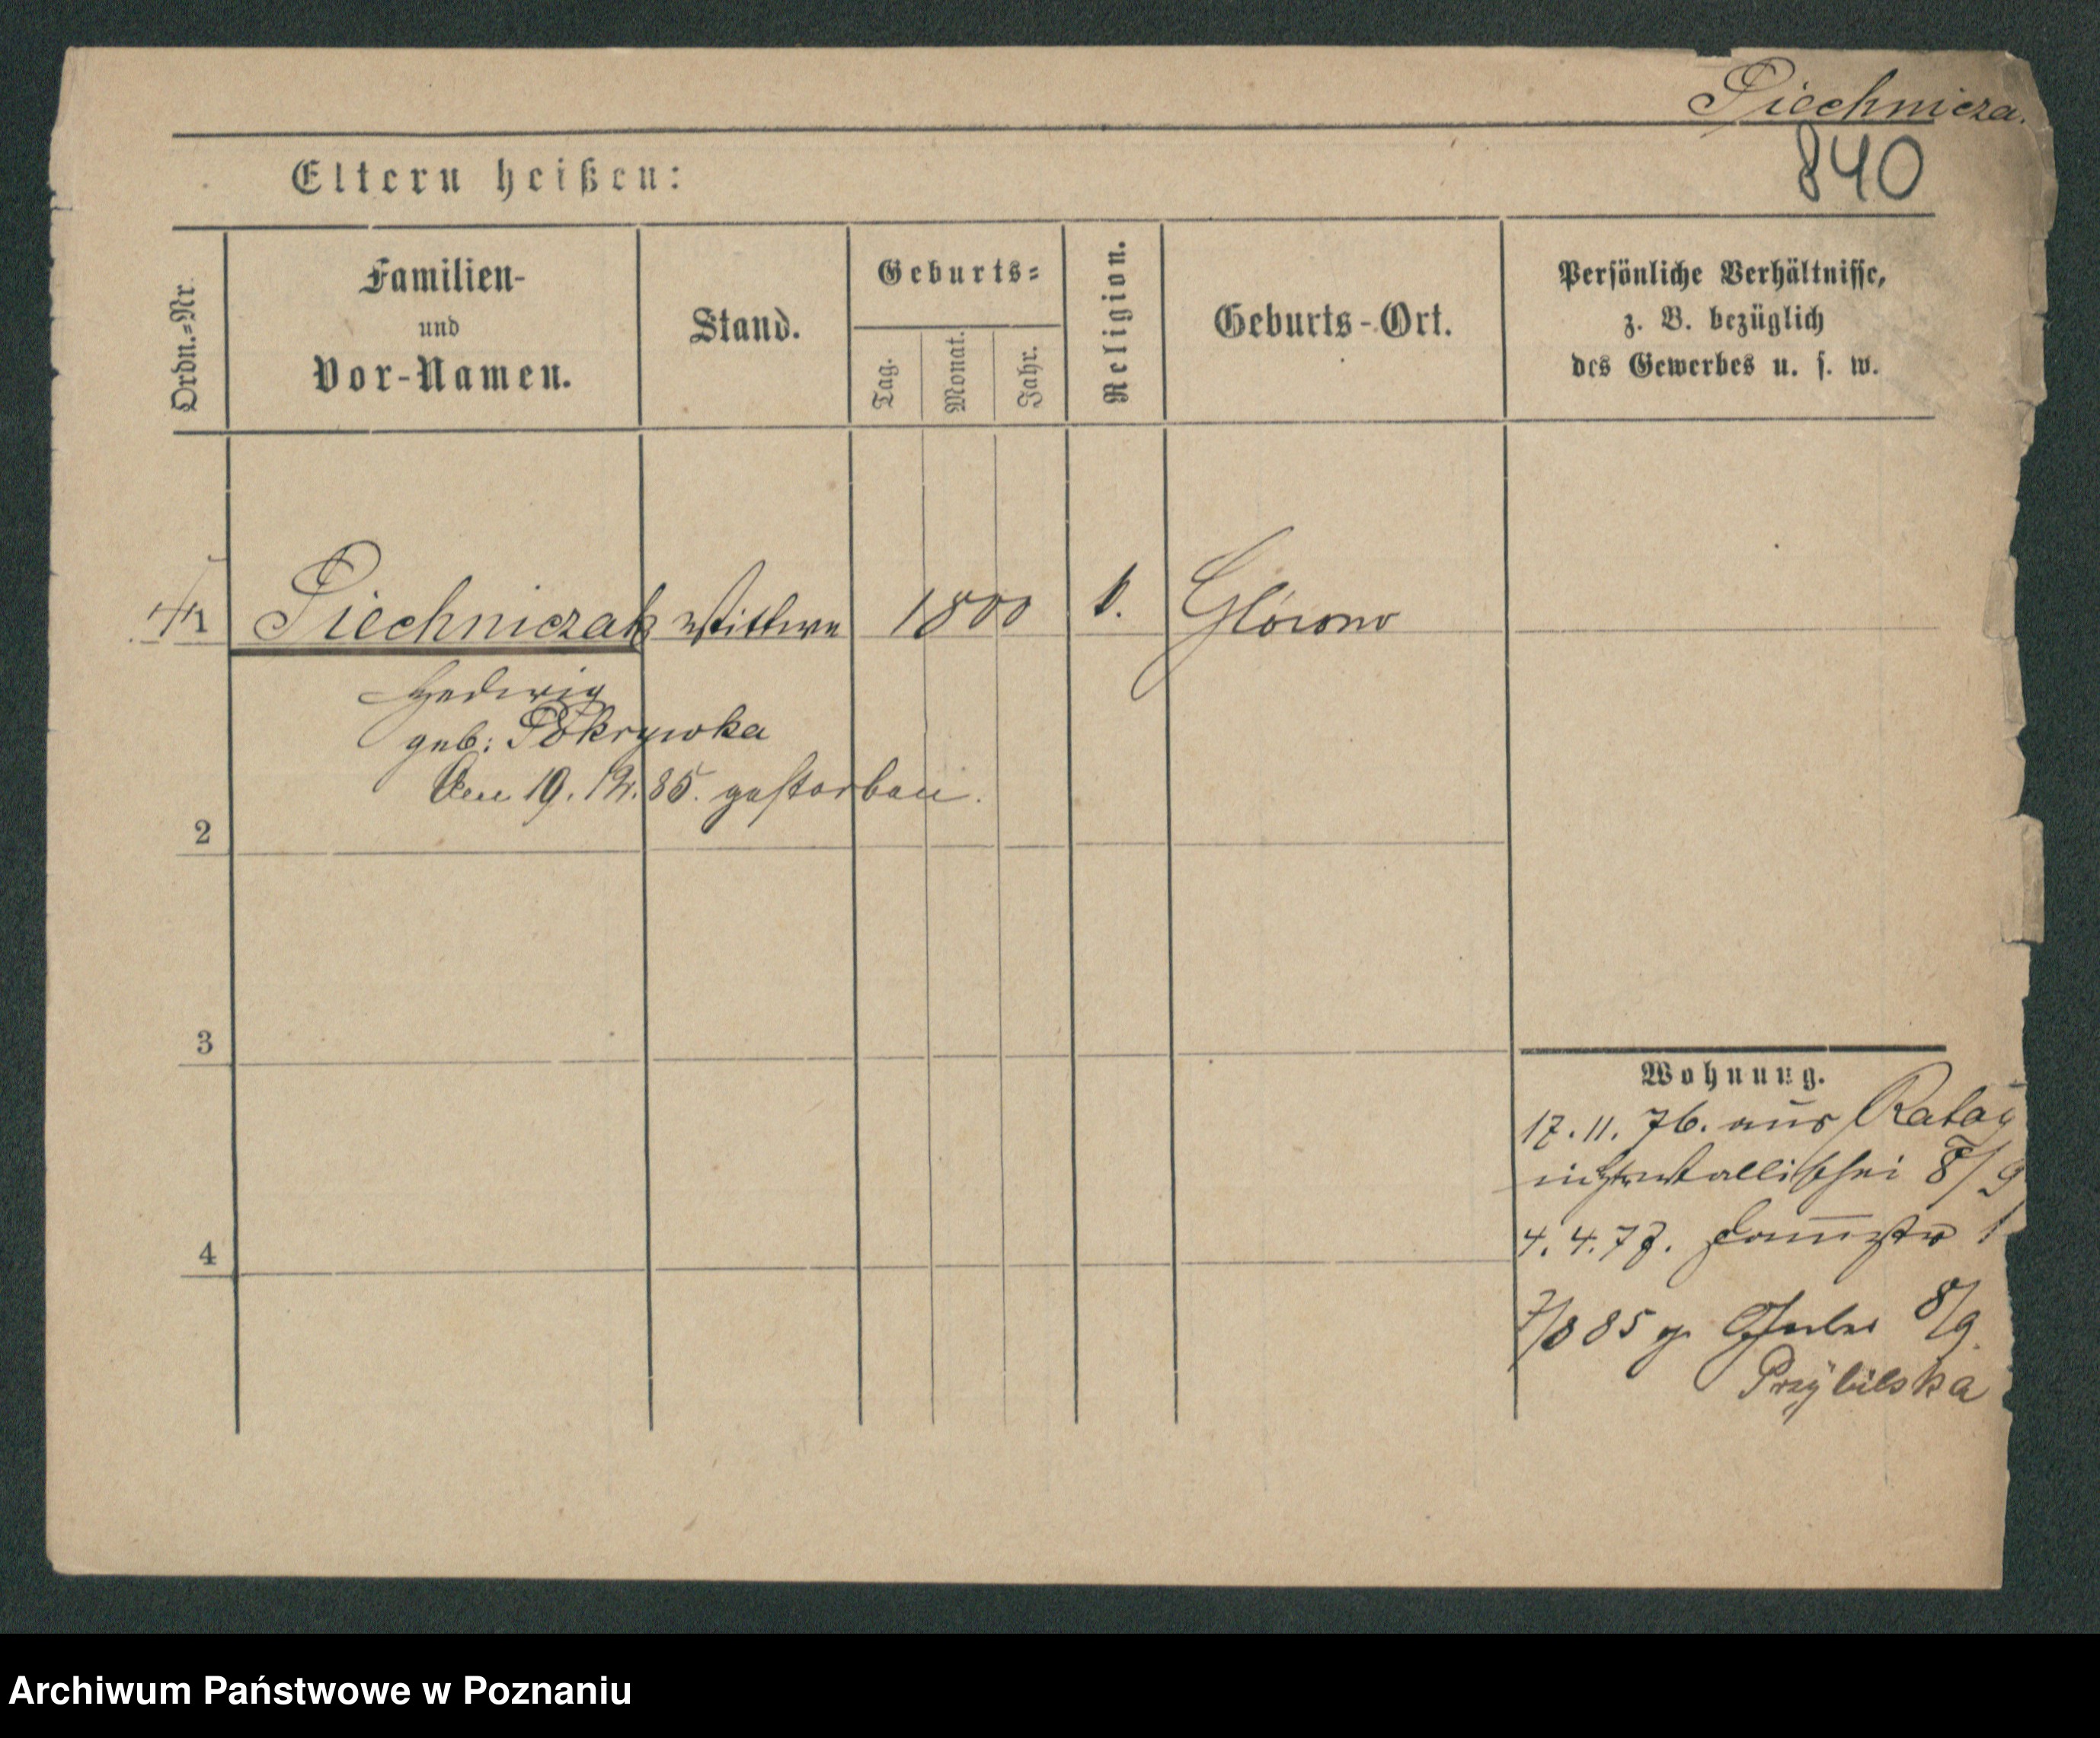 Piechnicza
840
Eltern heißen:
Ordn.=Nr.
Familien-
und
Vor-Namen.
Stand.
Geburts=
Tag.
Monat.
Jahr.
Religion.
Geburts-Ort.
Persönliche Verhältnisse,
z. B. bezüglich
des Gewerbes u. s. w.
1 Piechniczak Wittwe 1800 k. Glówno
Hedwig
geb: Pokrywka
Den 19. 12. 85. gestorben.
2
3
4
Wohnung.
17. 11. 76. aus Ratay
Wallischei 8/9
4. 4. 77.
7/8 85 8/9.
Przybilska
Archiwum Państwowe w Poznaniu